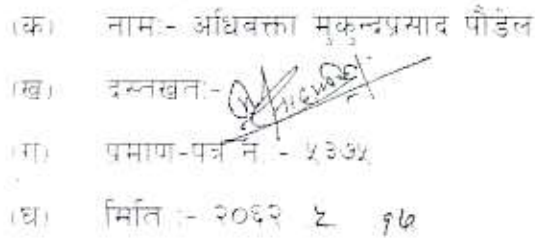 (क) नाम:- अधिवक्ता मुकुन्दप्रसाद पौडेल
(ख) दस्तखत:-
(ग) प्रमाण-पत्र नं - ५३७५
(घ) मिति :- २०६२ ८ १७